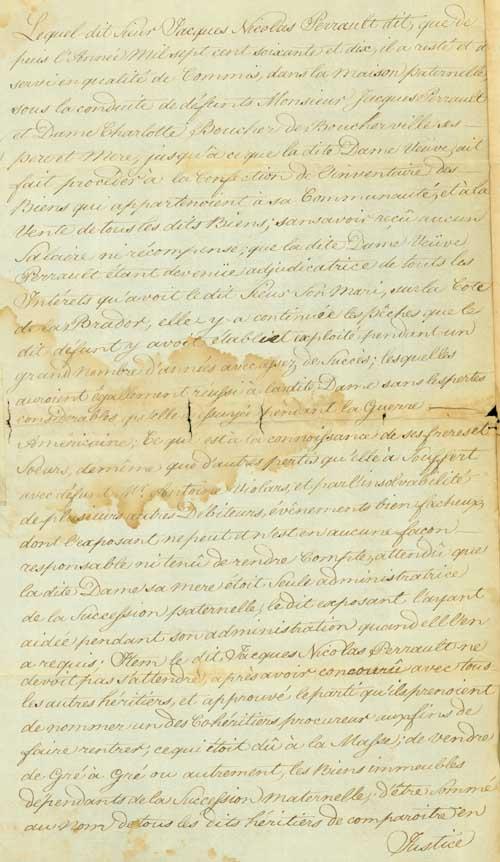 Lequel dit Sieur Jacques Nicolas Perrault dit, que de
puis l'Année Mil sept cent soixante et dix, il a resté et d
servi in qualité de Commis, dans la Maison paternelle
sous la conduite de défunts Monsieur Jacques Perrault
et Dame Charlotte Boucher de Boucherville ses
pere et Mere, jusqu'à ce que la dite Dame Veuve, ait
fait procéder à la Confection de l'inventaire des
Biens qui appartenoient à sa Communauté, et à la
Vente de tous les dits Biens; sans avoir reçû aucun
Salaire ni récompense; que la dite Dame Veüve
Perrault étant devenüe adjudicatrice de touts les
Intérêts qu'avoit le dit Sieur Son Mari, sur la Cote
de la Brador, elle y a continuée les Pêches que le
dit défunt y avoit établi et exploité pendant un
grand Nombre d'années avec assez de Succès; lesquelles
auroient également réussi à la dite Dame sans les pertes
considérables qu'elle pendant la Guerre
Américaine; Ce qui est à la connoissance de ses freres et
Soeurs, de même que d'autres pertes qu'elle à Souffert
avec défunt Mr. Antoine Violars, et par l'insolvabilité
de plusieurs autres Débiteurs, évènements bien facheux,
dont l'exposant ne peut et n'est en aucune façon
responsable ni tenû de rendre Compte, attendû que
la dite Dame sa mere étoit Seule administratrice
de la Succession paternelle, le dit exposant l'ayant
aidée pendant son administration quand ell l'en
a requis; Item le dit Jacques Nicolas Perrault ne
devoit pas s'attendre, après avoir concouru avec tous
les autres héritiers, et approuvé le parti qu'ils prenoient
de nommer un des Cohéritiers procureur aux fins de
faire rentrer, ce qui étoit dû à la Masse; de vendre
de Gré à Gré ou autrement, les Biens immeubles
dépendants de la Succession Maternelle, d'être Sommé
au Nom de tous les dits héritiers de comparoitre en
Justice